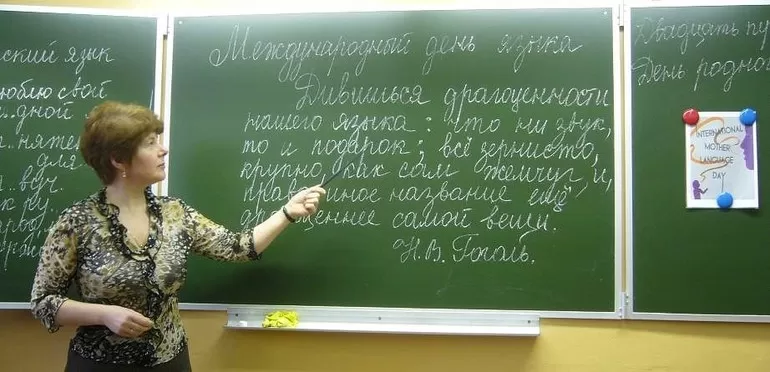 ский язык
юблю свой
дной
для
Международный день языка
Дивишься драгоценности
нашего языка: что ни звук,
то и подарок; всё зернисто,
крупно, как сам жемчуг, и,
право, иное название ещё
драгоценнее самой вещи.
Н.В. Гоголь.
Двадцать
День родно
INTERNATIONAL
MOTHER
LANGUAGE
DAY